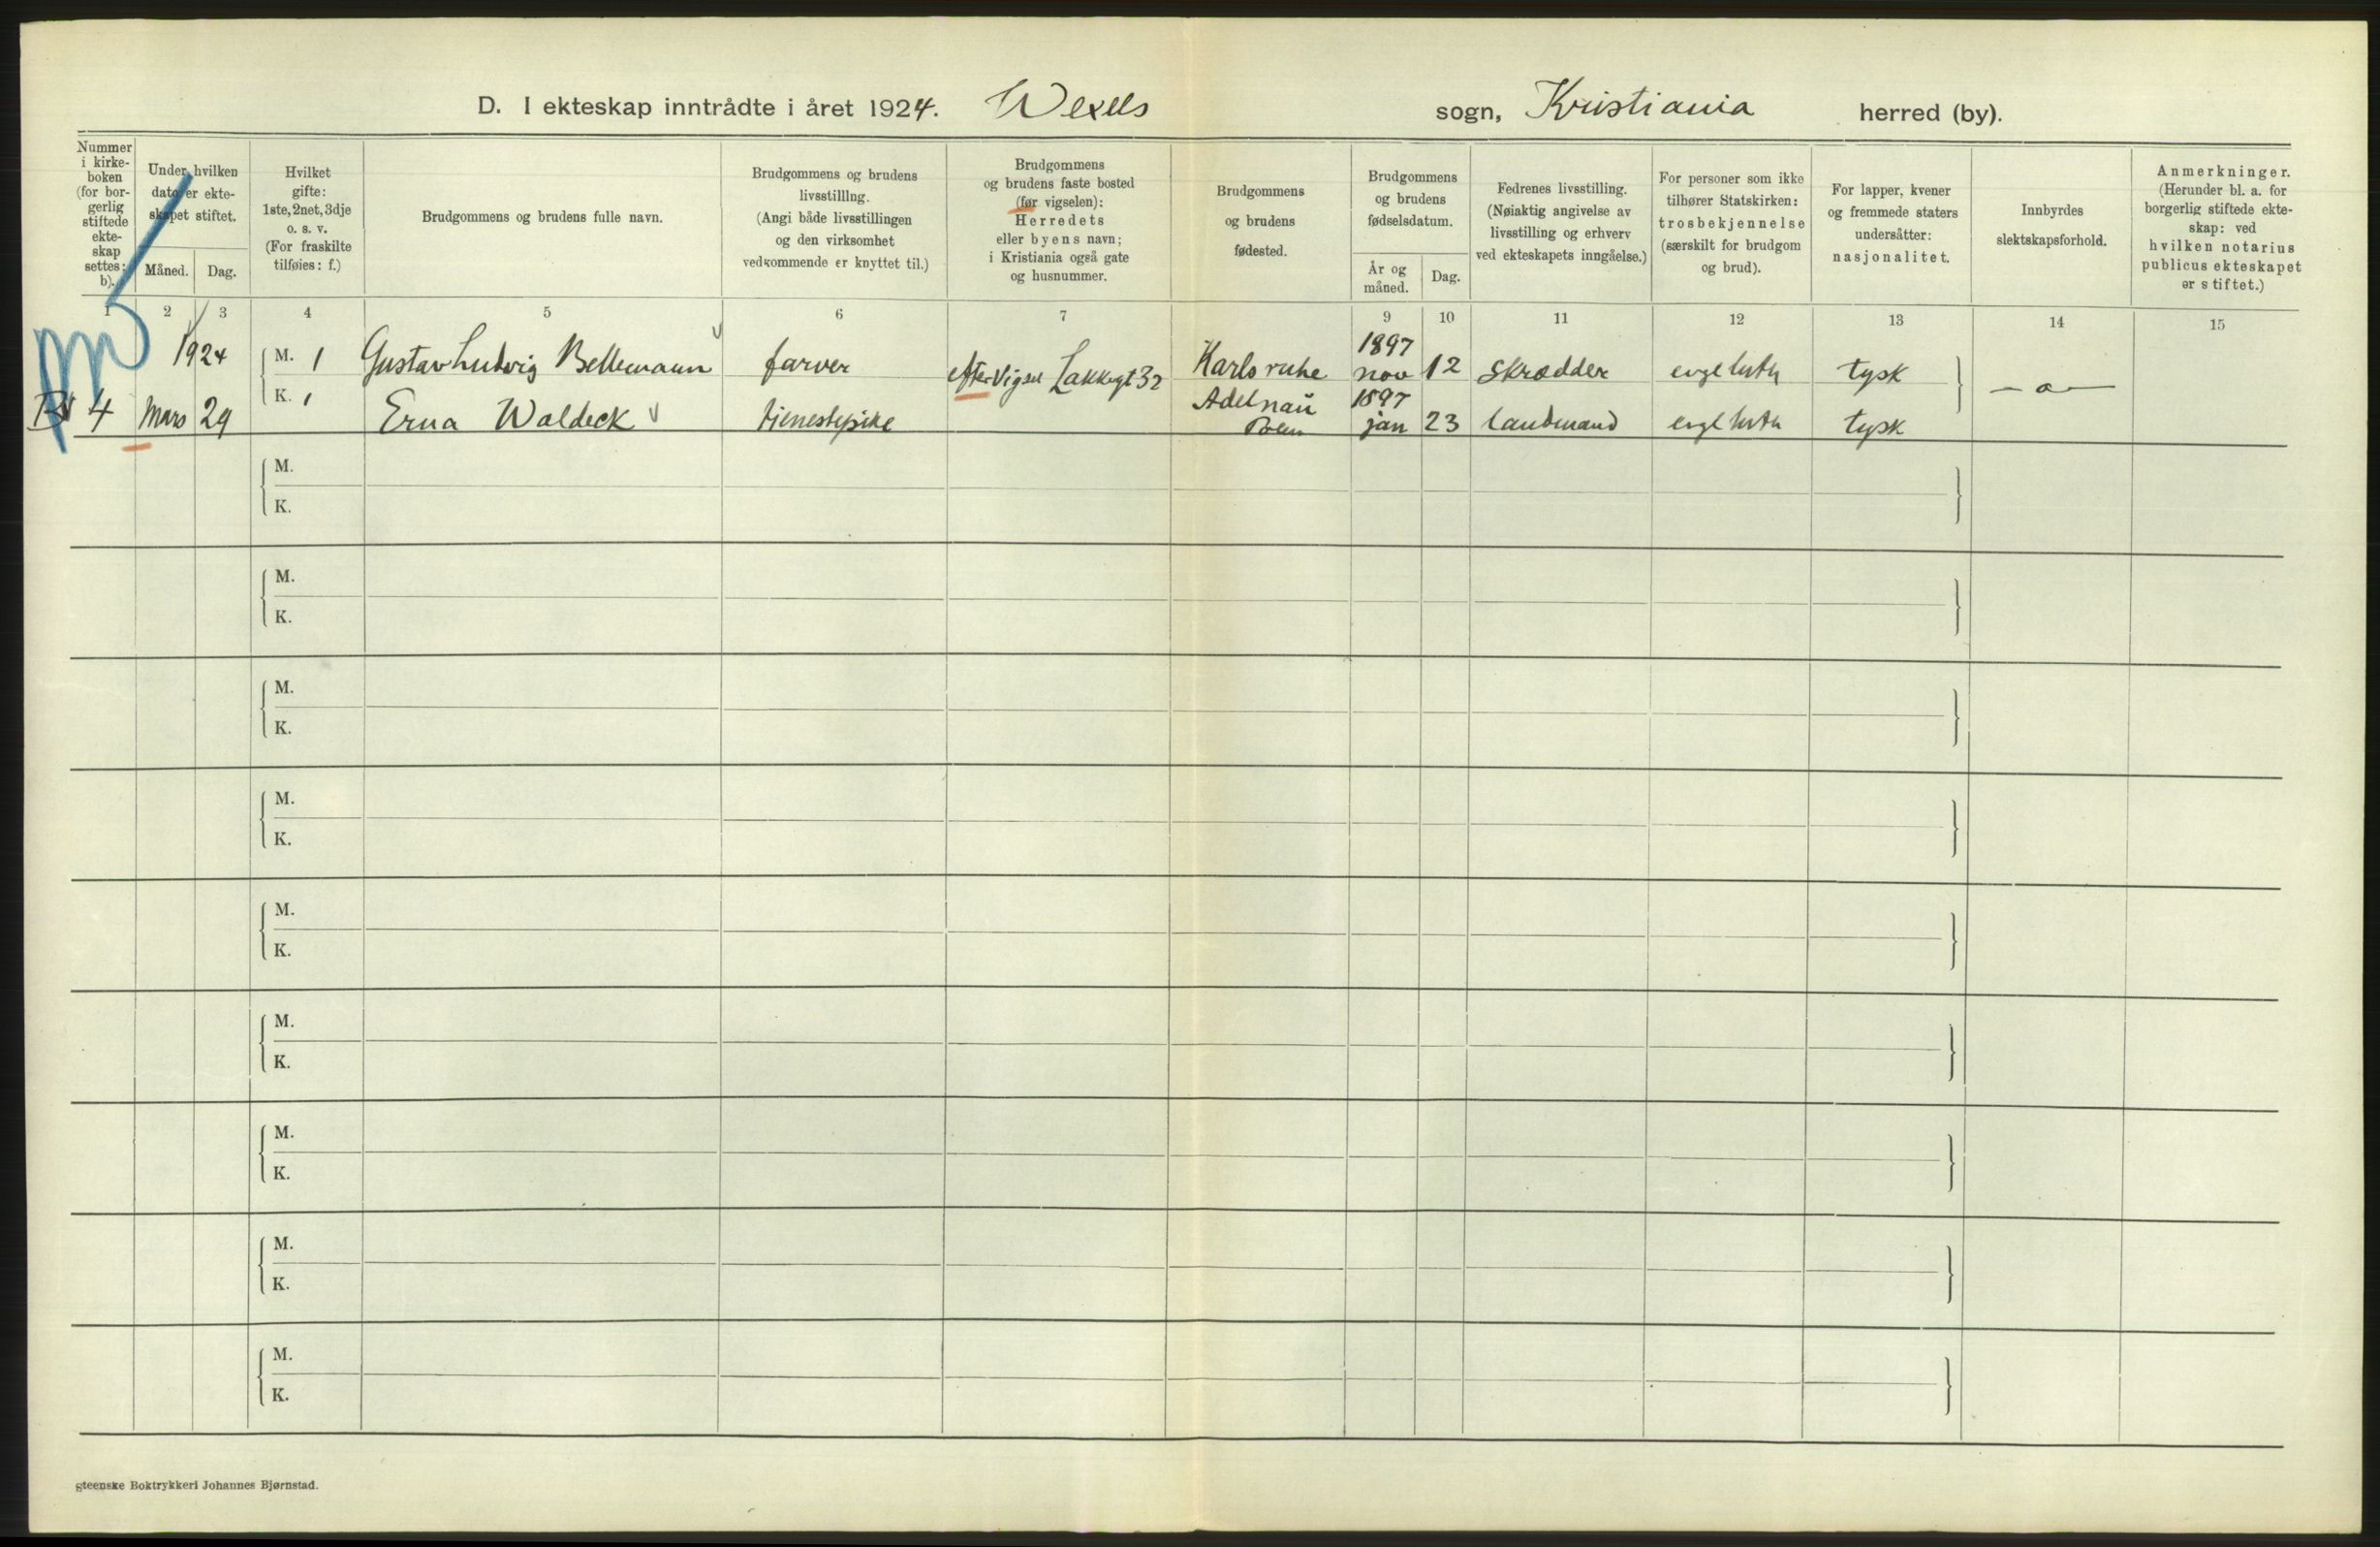 D. I ekteskap inntrådte i året 1924. Wexels sogn, Kristiania herred (by).
Nummer
i kirke-
boken
(for bor-
gerlig
stiftede
ekte-
skap
settes:
b).
Under hvilken
dato er ekte-
skapet stiftet.
Måned. Dag.
Hvilket
gifte:
1ste, 2net, 3dje
o. s. v.
(For fraskilte
tilføies: f.)
Brudgommens og brudens fulle navn.
Brudgommens og brudens
livsstilllng.
(Angi både livsstillingen
og den virksomhet
vedkommende er knyttet til.)
Brudgommens
og brudens faste bosted
(før vigselen):
Herredets
eller byens navn;
i Kristiania også gate
og husnummer.
Brudgommens
og brudens
fødested.
Brudgommens
og brudens
fødselsdatum.
År og
måned.
Dag.
Fedrenes livsstilling.
(Nøiaktig angivelse av
livsstilling og erhverv
ved ekteskapets inngåelse.)
For personer som ikke
tilhører Statskirken:
trosbekjennelse
(særskilt for brudgom
og brud).
For lapper, kvener
og fremmede staters
undersåtter:
nasjonalitet.
Innbyrdes
slektskapsforhold.
Anmerkninger.
(Herunder bl. a. for
borgerlig stiftede ekte-
skap: ved
hvilken notarius
publicus ekteskapet
er stiftet.)
1 2 3 4 5 6 7 9 10 11 12 13 14 15
1924 M. 1 Gustav Ludvig Bellemann farver efter Vigsel Lakkegt 32 Karlsruhe 1897 nov 12 Skrædder evgl luth tysk — o —
4 Mars 29 K. 1 Erna Waldeck tjenestepike Adelnaŭ Polen 1897 jan 23 landmand evgl luth tysk
M.
K.
M.
K.
M.
K.
M.
K.
M.
K.
M.
K.
M.
K.
M.
K.
M.
K.
steenske Boktrykkeri Johannes Bjørnstad.